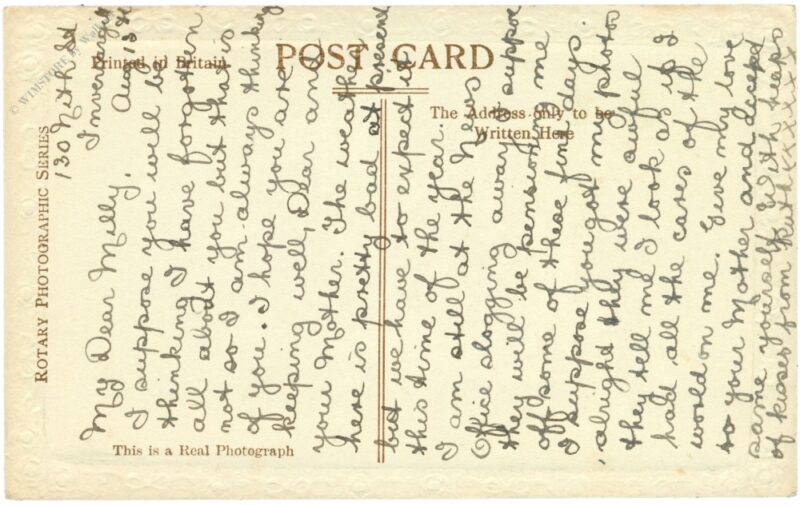 © WIMSTORE by Walker
Printed in Britain
POST CARD
The Address only to be
Written Here
ROTARY PHOTOGRAPHIC SERIES
This is a Real Photograph
130 Nith Sd
Invercargill
Aug 13th
My Dear Milly.
I suppose you will be
thinking I have forgotten
all about you but that is
not so I am always thinking
of you. I hope you are
keeping well, Dear and
your Mother. The weather
here is pretty bad at present
but we have to expect it
this time of the year.
I am still at the News
Office slogging away suppose
they will be pensioning me
off some of these fine days.
I suppose you got my photos
alright they were awful
they tell me I look as if I
had all the cares of the
world on me. Give my love
to your Mother and accept
same yourself. With heaps
of kisses from Ruth xxxxxxx